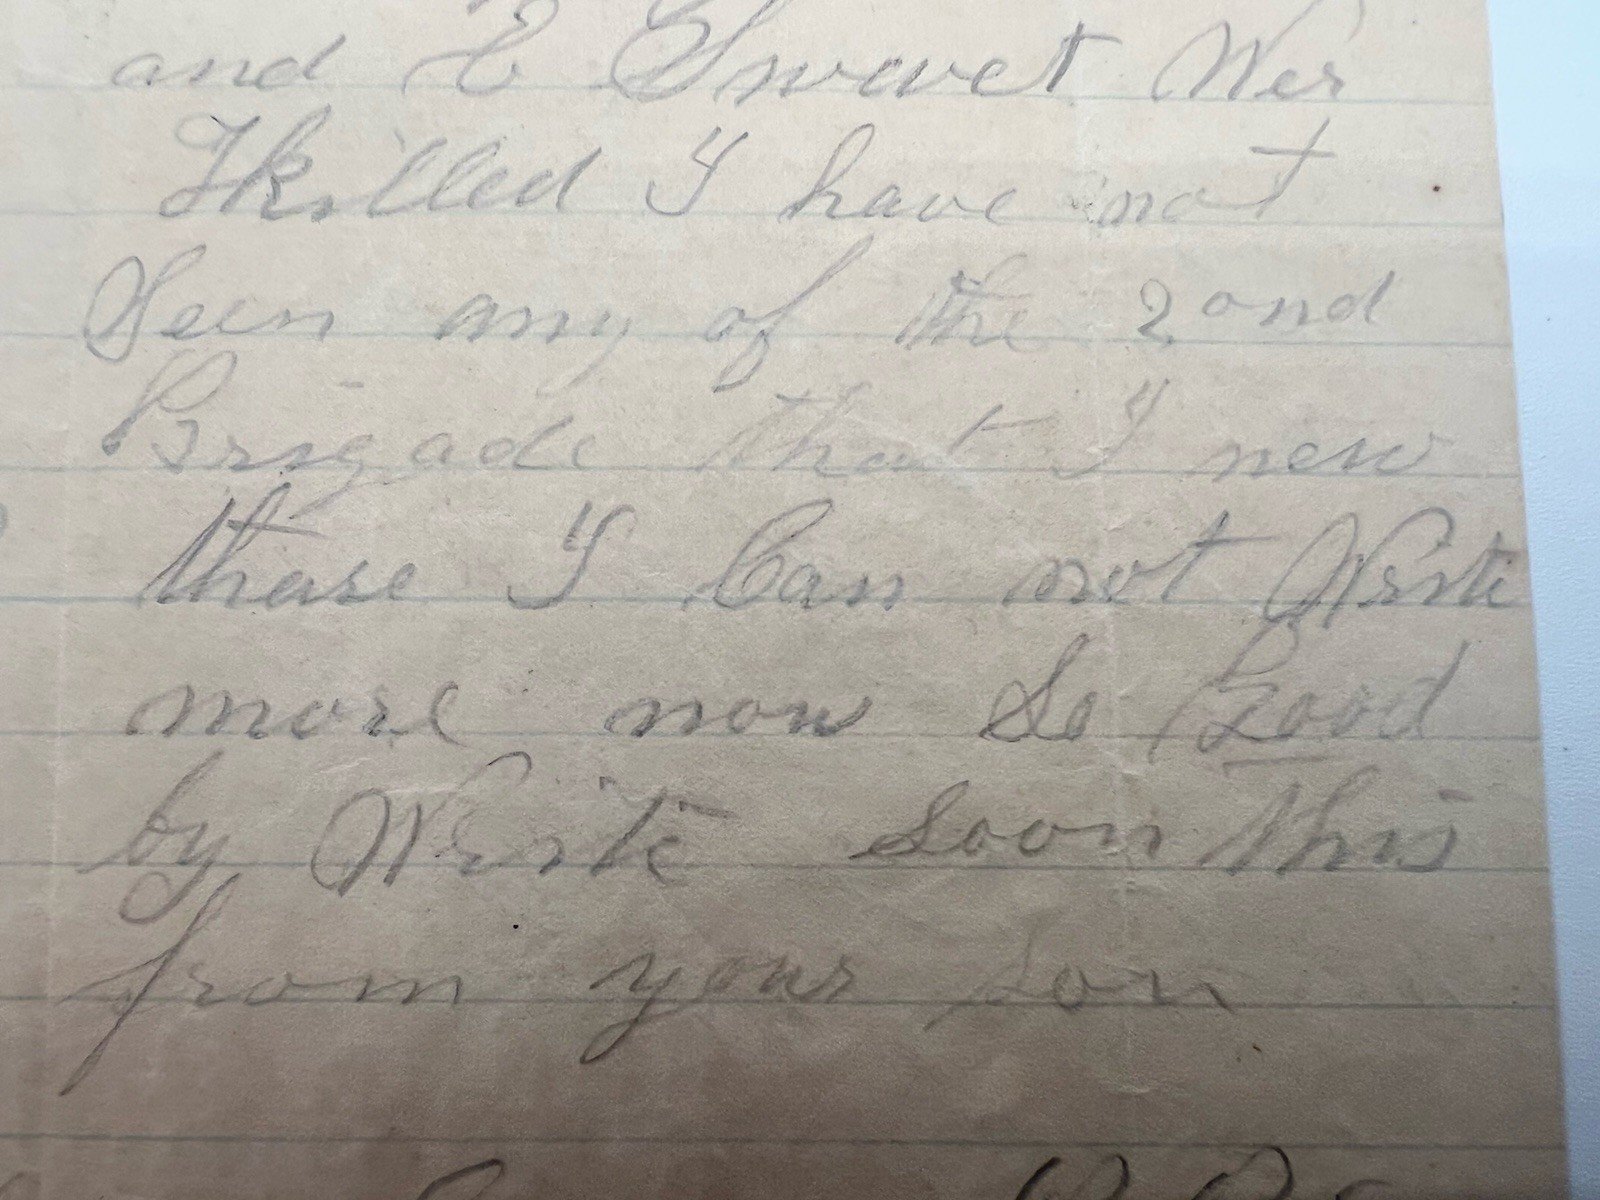 and E Swavet Wer
Killed I have not
Seen any of the 2ond
Brigade that I new
thare I Can not Write
more now So Good
by Write soon this
from your son